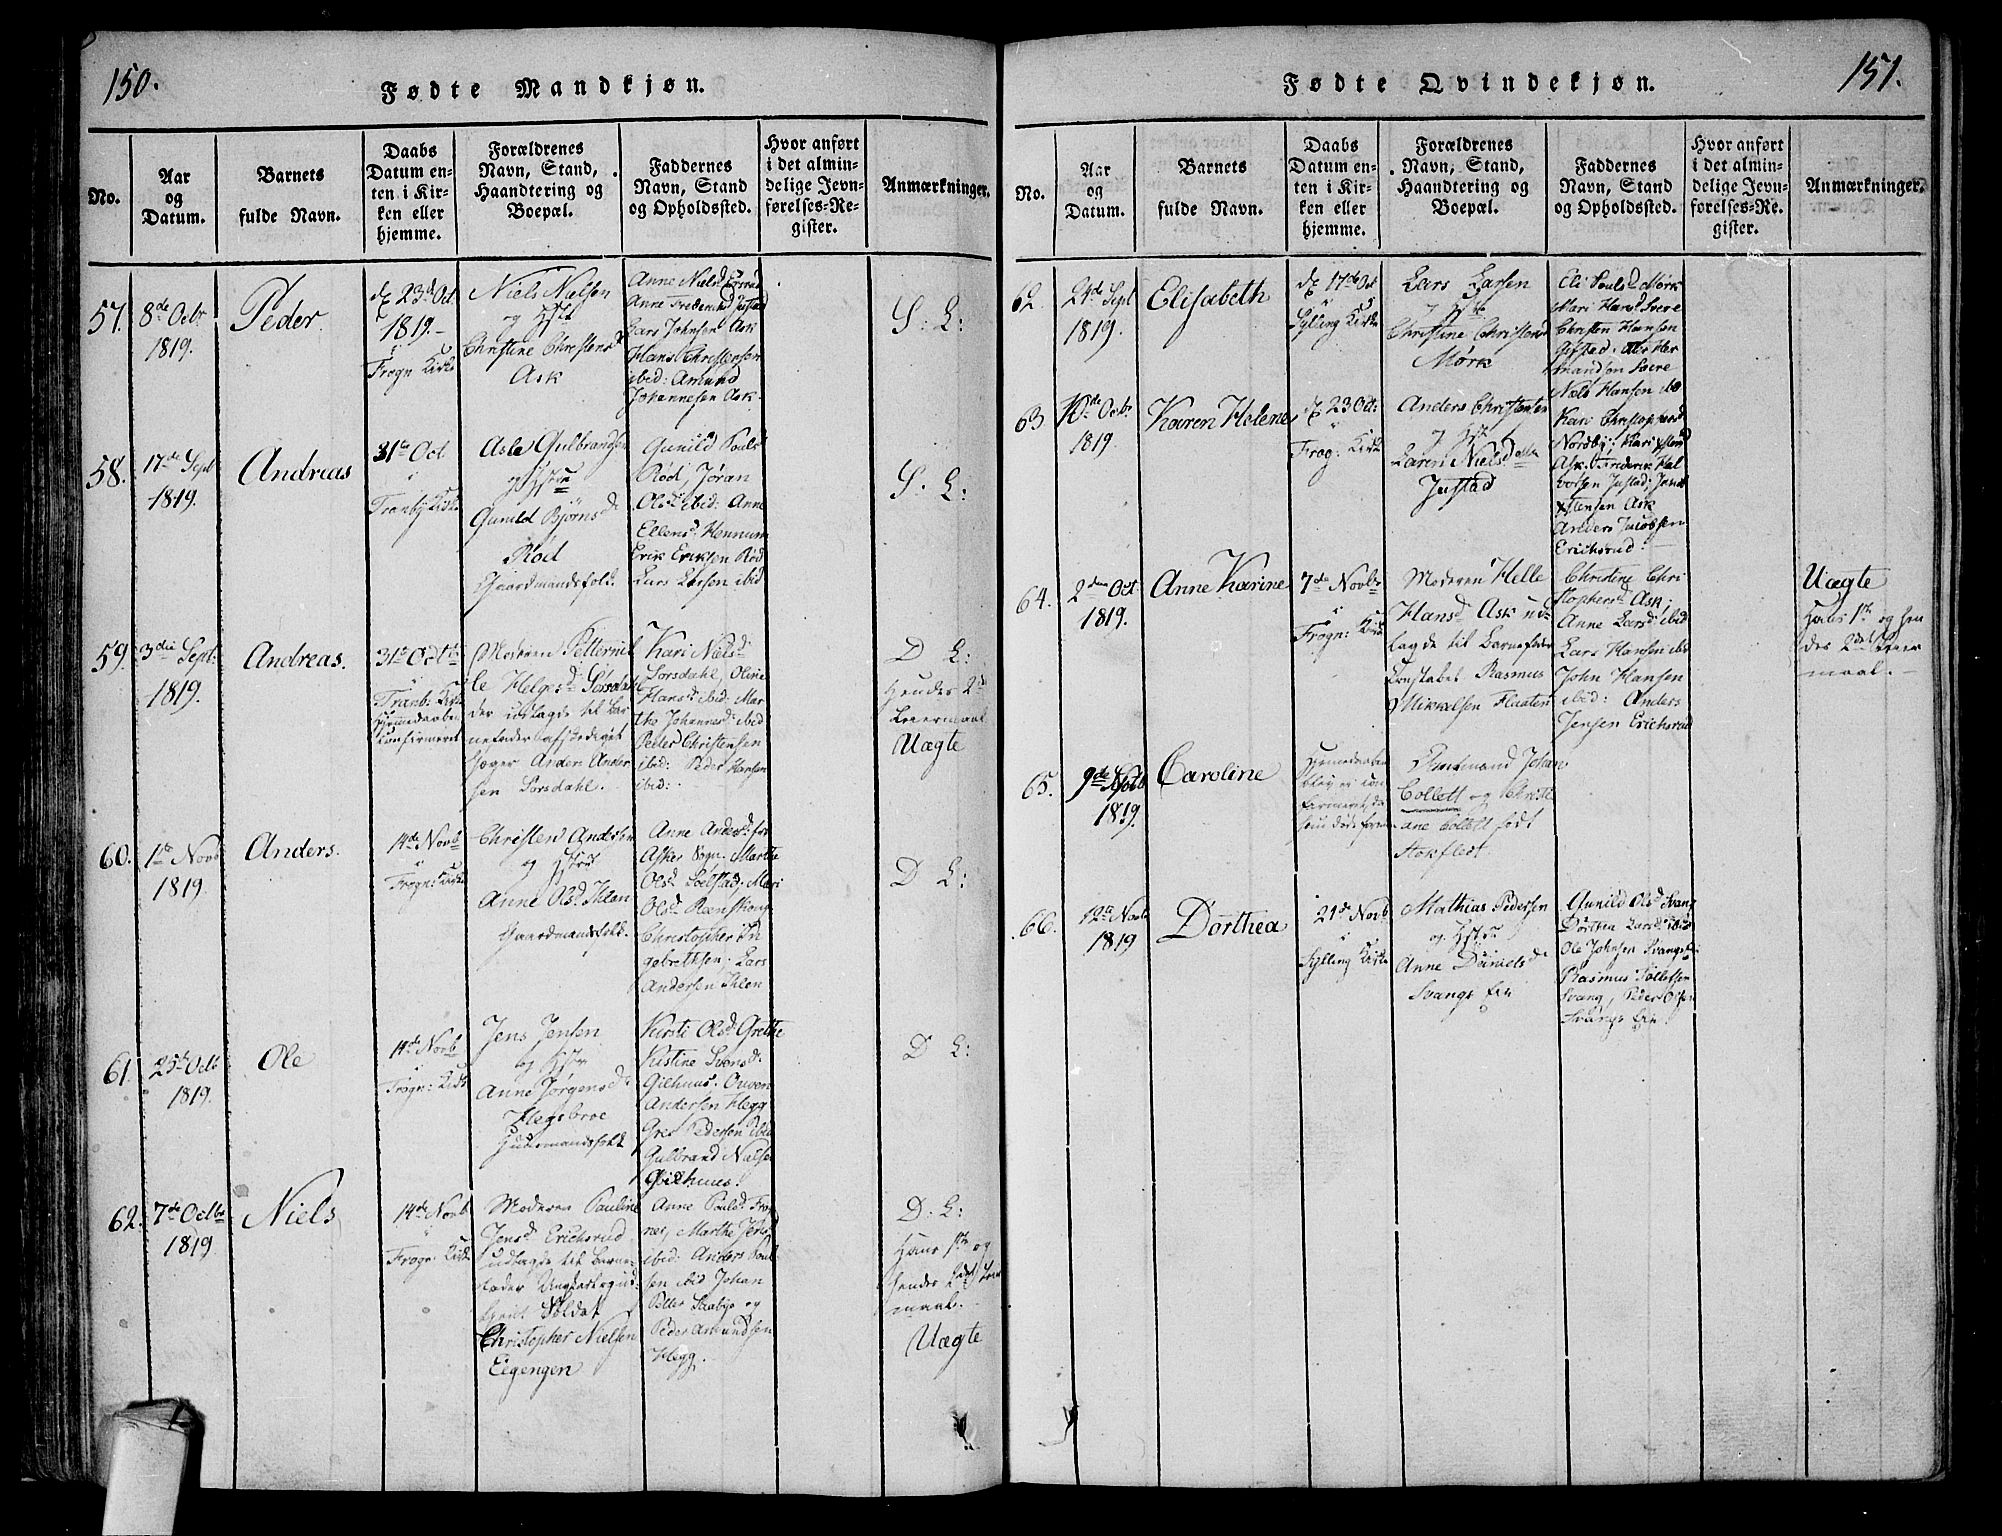 150.
Fødte Mandkjøn.
No.
Aar
og
Datum.
Barnets
fulde Navn.
Daabs
Datum en-
ten i Kir-
ken eller
hjemme.
Forældrenes
Navn, Stand,
Haandtering og
Boepæl.
Faddernes
Navn, Stand
og Opholdssted.
Hvor anført
i det almin-
delige Jevn-
førelses-Re-
gister.
Anmærkninger.
57.
8de Octbr
1819.
Peder.
23d Oct
1819.
Frogn Kirke
Niels Nielsen
og
Christine Christensd
Ask
Anne Nielsd
Anne Frederiksd Justad
Lars Johnsen Ask
Hans Christensen
ibid: Amund
Johannesen Ask.
S: L:
58.
17de Sept
1819.
Andreas
31te Oct
Tranby Kirke
Asle Gulbrandsen
og
Gunild Bjørnsd
Rød
Gaardmandsfolk.
Gunild Pouls
Rød, Jøran
Olsd ibid: Anne
Ellensd: Hennum
Erik Eriksen Rød
Lars Larsen ibid
S. L:
59.
3die Sept:
1819.
Andreas.
31te Octb
Tranb: Kirke
Hjemmedaaben
confirmeret
Moderen Petternil
le Helgesd Sørsdahl
der udlagde til Bar
nefader afskediget
Jæger Anders Ander
sen Sørsdahl.
Kari Nielsd:
Sørsdahl, Oline
Hansd ibid: Mar
the Johannesd: ibid
Peder Christensen
ibid: Peder Hansen
ibid:
D L:
Hendes 2det
Leiermaal
Uægte
60.
1te Novb
1819.
Anders.
14de Novb
Frogn: Kirke
Christen Andersen
og
Anne Olsd Ihlen
Gaardmandsfolk.
Anne Andersd: for
Asker Sogn. Marthe
Olsd Solstad; Mari
Olsd Reenskoug
Christopher In
gebrethsen; Lars
Andersen Ihlen
D L:
61.
25de Octb
1819.
Ole
14de Novb
Frogn: Kirke
Jens Jensen
og
Anne Jørgensd:
Hegsbroe
Huusmandsfolk
Kirsti Olsd Grethe
Kistine Svensd:
Gilhuus. Ouven
Andersen Hegg
Gres Pedersen ibid
Gulbrand Nielsen
Gilhuus.
D L:
62.
7de Octbr
1819
Niels
14de Novb
Frogn: Kirke
Moderen Pauline
Jensd Erichsrud
udlagde til Barne-
fader
Soldat
Christopher Nielsen
Eegengen
Anne Poulsd: Frog
ner, Marthe
ibid: Anders Poul
sen ibid Johan
Petter Saabye og
Peder Amundsen
Hegg.
D: L:
Hans 1ste og
hendes 2det Leier
maal.
Uægte
151.
Fødte Qvindekjøn.
No.
Aar
og
Datum.
Barnets
fulde Navn.
Daabs
Datum en-
ten i Kir-
ken eller
hjemme.
Forældrenes
Navn, Stand,
Haandtering og
Boepæl.
Faddernes
Navn, Stand
og Opholdssted.
Hvor anført
i det almin-
delige Jevn-
førelses-Re-
gister.
Anmærkninger.
62.
Sept
1819.
Elisabeth
17de Oct
Sylling Kirke
Lars Larsen
Christine Christensd
Mørk
Eli Poulsd Mørk
Mari Hansd Svere
Christen Hansen
Gifstad. Her
mandsen Svere
Niels Hansen ibd
63
10de Octbr
1819.
Karen Helene
23 Oct:
Frog: Kirke
Anders Christensen
Karen Nielsdatter
Justad
Kari Christophersd
Nordby; Kari
Ask. Frederik Hal
vorsen Justad;
Ask
Anders Jacobsen
Erichsrud:
64.
2den Oct
1819.
Anne Karine
7de Novbr
Frogn: Kirke
Moderen Helle
Hansd Ask ud
lagde til Barnefader
Constabel Rasmus
Mikkelsen Flaaten
Christine Chri
stophersd Ask;
Anne Larsd: ibid
Lars Hansen ibd
John Hansen
ibid: Anders
Jensen Erichsrud
Uægte
Hans 1ste og hen
des 2det Leier
maal.
65.
9de
1819.
Caroline
Hjemmedaaben
blev ei con
firmeret, da
Amtmand Johan
Collett og Christi
ane Collett født
Stokfledt.
66.
12te Novb
1819
Dorthea
21de Novb
Sylling Kirke
Mathias Pedersen
og
Anne Danielsd
Svangs Eie
Gunild Olsd Svang
Dorthea Larsd: ibid
Ole Johnsen Svangs
Rasmus Tollefsen
Svang, Peder Olsen
Svangs Eie.